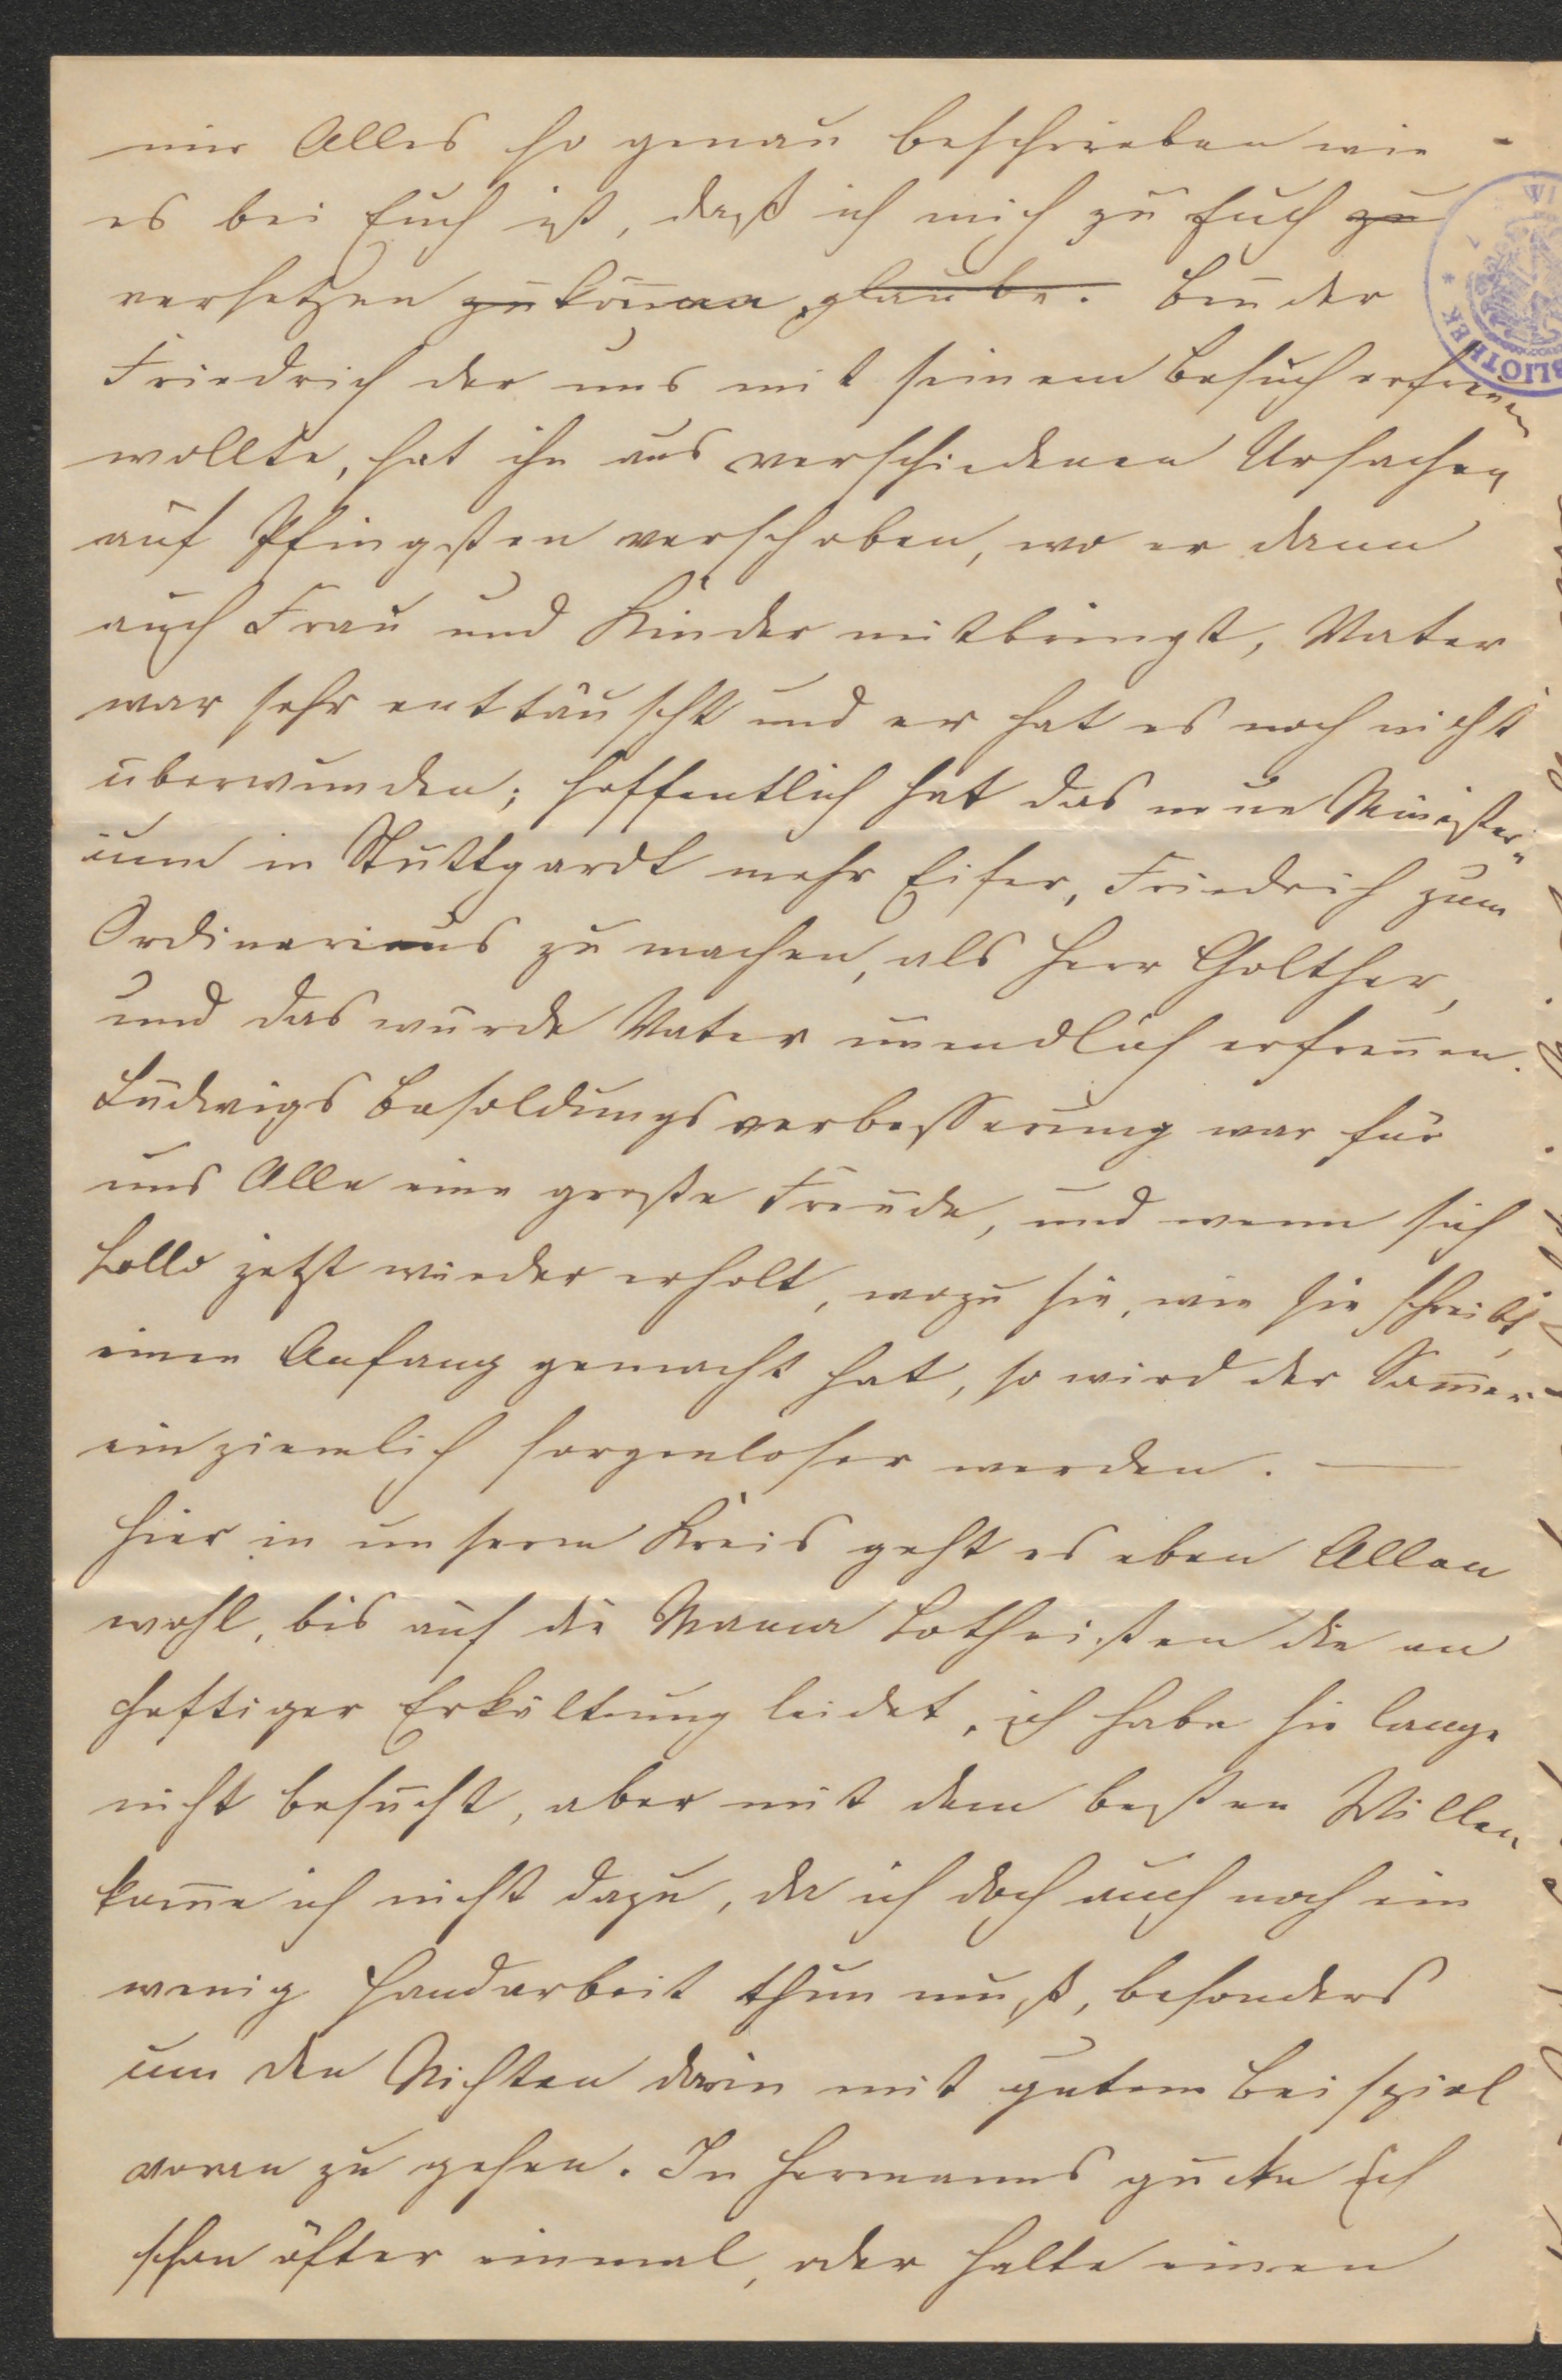 mir Alles so genau beschrieben wie
es bei Euch ist, daß ich mich zu Euch zu
versetzen zu könen glaube. Bruder
Friedrich der uns mit seinem Besuch erfreuen
wollte, hat ihn aus verschiedenen Ursachen
auf Pfingsten verschoben, wo er dann
auch Frau und Kinder mitbringt, Vater
war sehr enttäuscht und er hat es noch nicht
überwunden; hoffentlich hat das neue Minister-
ium in Stuttgardt mehr Eifer, Friedrich zum
Ordinarius zu machen, als Herr Golther,
und das würde Vater unendlich erfreuen.
Ludwigs Besoldungsverbesserung war für
uns Alle eine große Freude, und wenn sich
Lollo jetzt wieder erholt, wozu sie, wie sie schreibt,
einen Anfang gemacht hat, so wird der Somer
ein ziemlich sorgenloser werden. —
Hier in unserm Kreis geht es eben Allen
wohl, bis auf die Mama Lotheißen die an
heftiger Erkältung leidet, ich habe sie lange
nicht besucht, aber mit dem besten Willen
kome ich nicht dazu, da ich doch auch noch ein
wenig Handarbeit thun muß, besonders
um den Nichten darin mit gutem Beispiel
voran zu gehen. In Hermanns gucke ich
schon öfter einmal, oder halte einen
BLIOTHEK